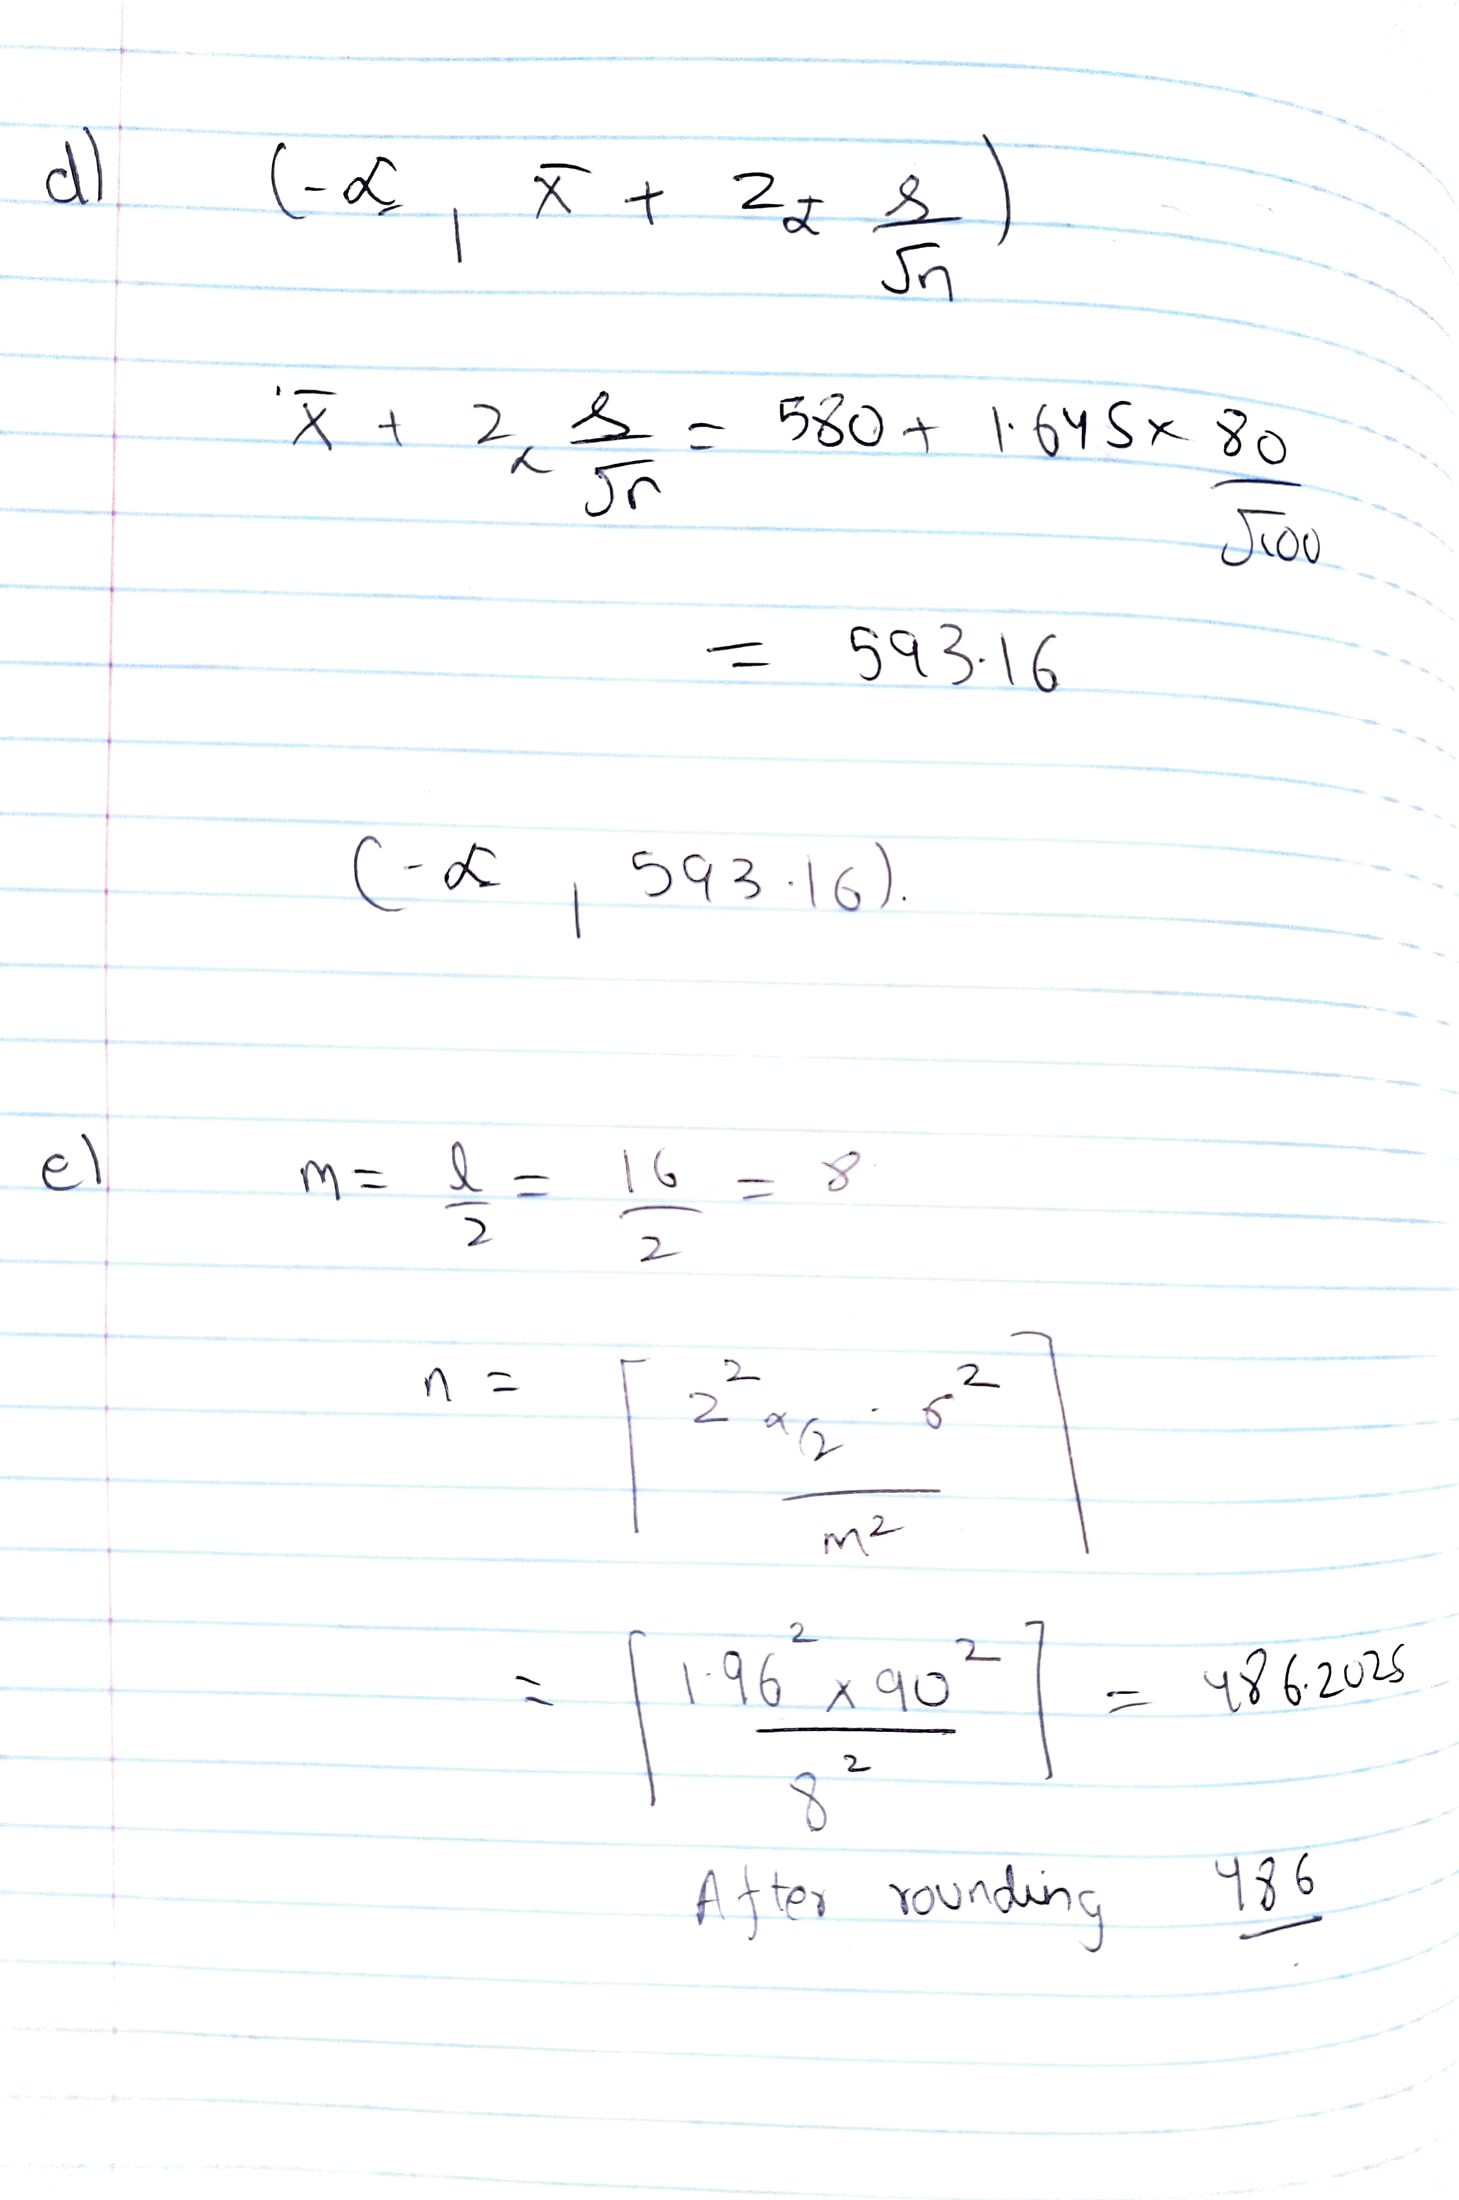 d) (-∝, x̄ + z_α s/√n)
x̄ + z_α s/√n = 580 + 1.645 × 80/√100
= 593.16
(-∝, 593.16).
e) m = l/2 = 16/2 = 8
n = ⌈z²_α/2 · σ² / m²⌉
= ⌈1.96² × 90² / 8²⌉ = 486.2025
After rounding 486